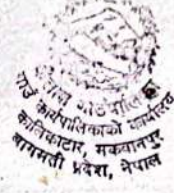 गाउँ कार्यपालिकाको कार्यालय
कालिकाटार, मकवानपुर
बागमती प्रदेश, नेपाल